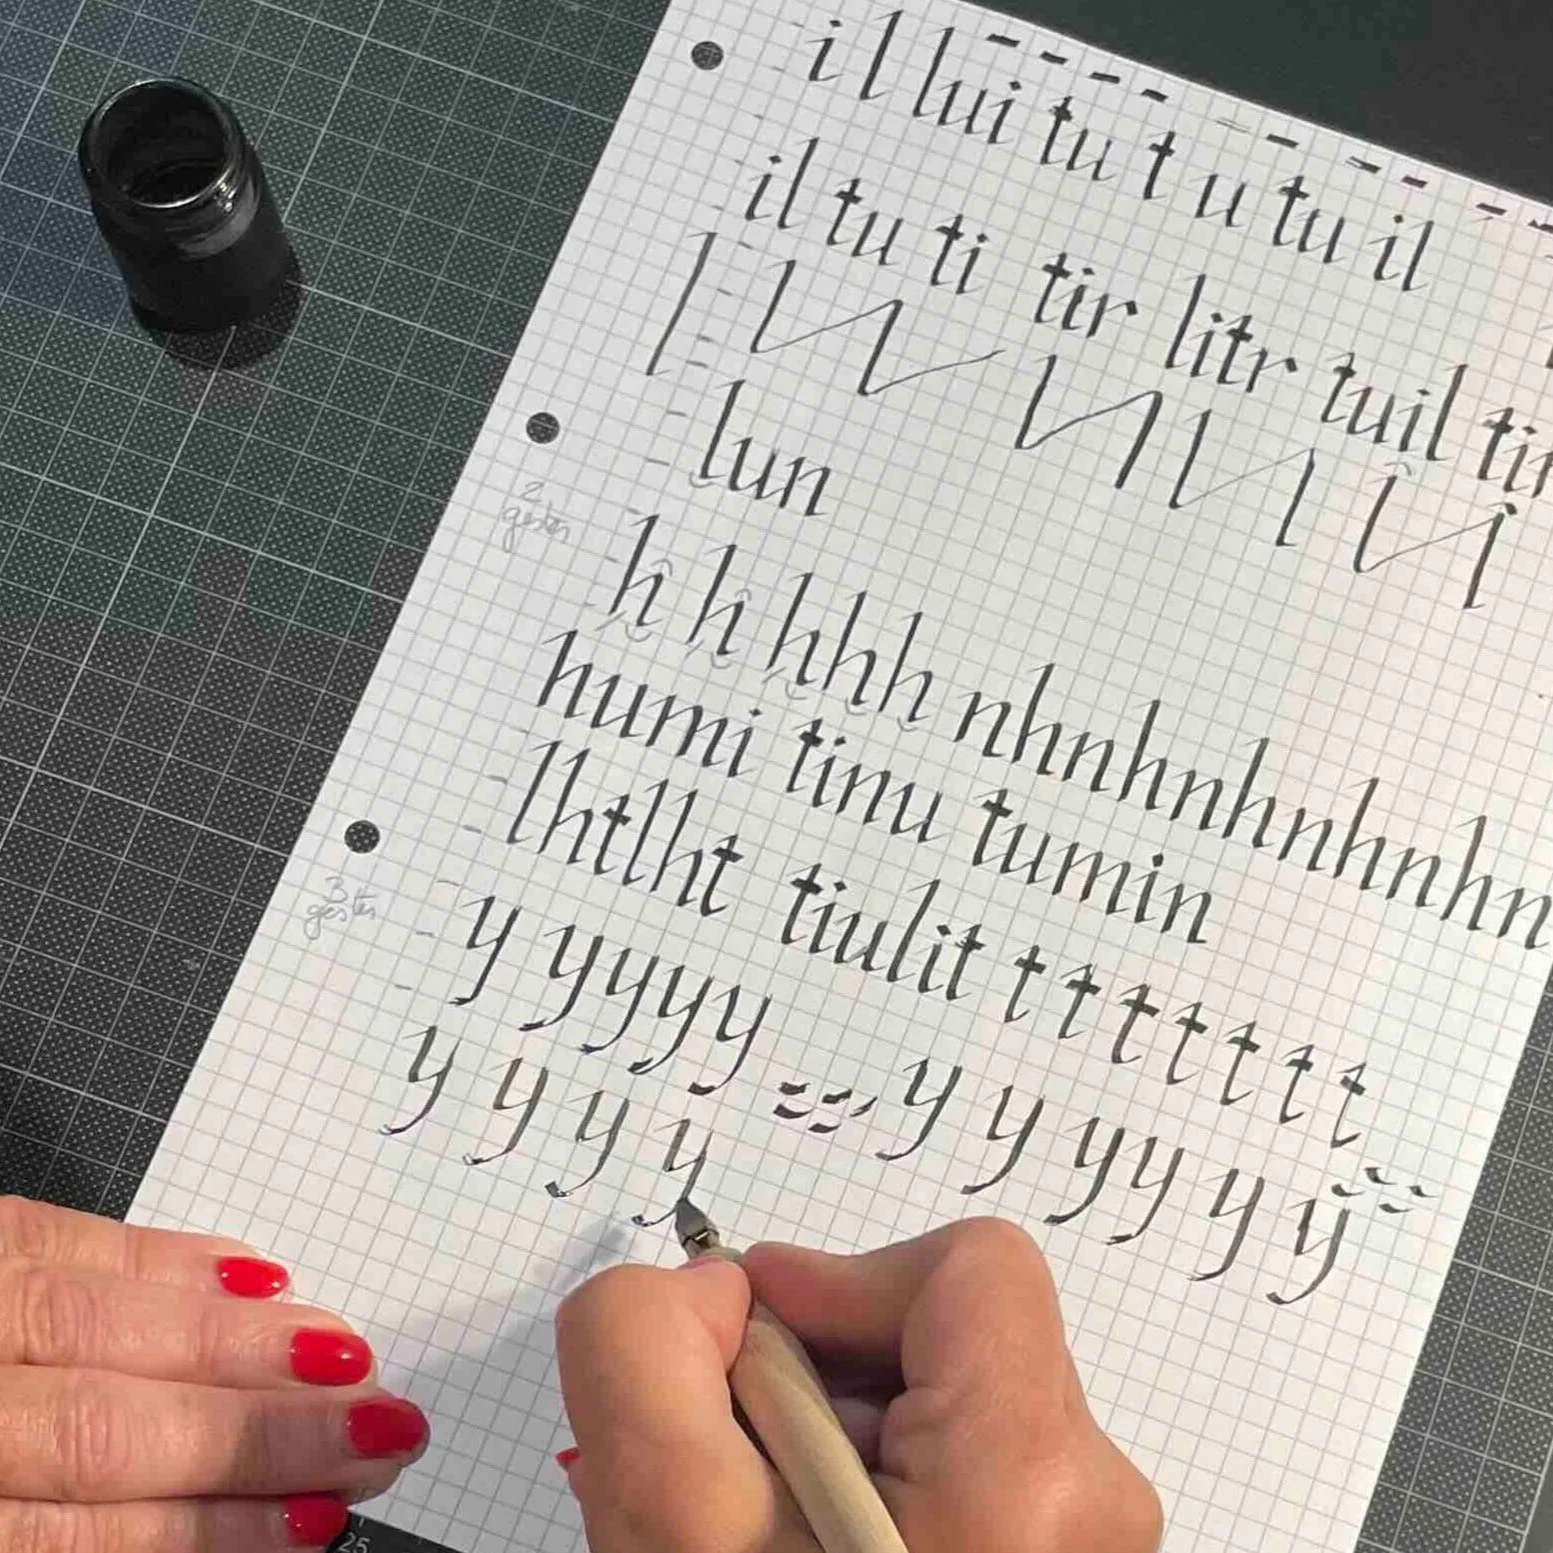 i l lui tu t u tu il
il tu ti tir litr tuil tir
lun
2 gestes
h h h h h nhnhnhnhnhn
humi tinu tumin
lhtlht tiulit t t t t t t t
3 gestes
y y y y y y y y y y y
y y y y
25